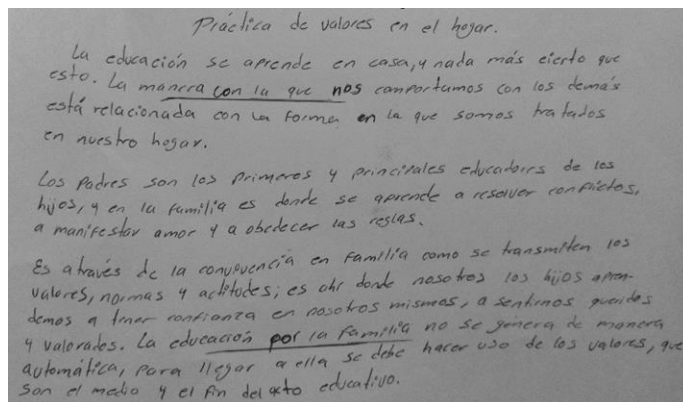 Práctica de valores en el hogar.
La educación se aprende en casa, y nada más cierto que
esto. La manera con la que nos comportamos con los demás
está relacionada con la forma en la que somos tratados
en nuestro hogar.
Los Padres son los primeros y principales educadores de los
hijos, y en la familia es donde se aprende a resolver conflictos,
a manifestar amor y a obedecer las reglas.
Es através de la convivencia en familia como se transmiten los
valores, normas y actitudes; es ahí donde nosotros los hijos apren-
demos a tener confianza en nosotros mismos, a sentirnos queridos
y valorados. La educación por la familia no se genera de manera
automática, para llegar a ella se debe hacer uso de los valores, que
son el medio y el fin del acto educativo.